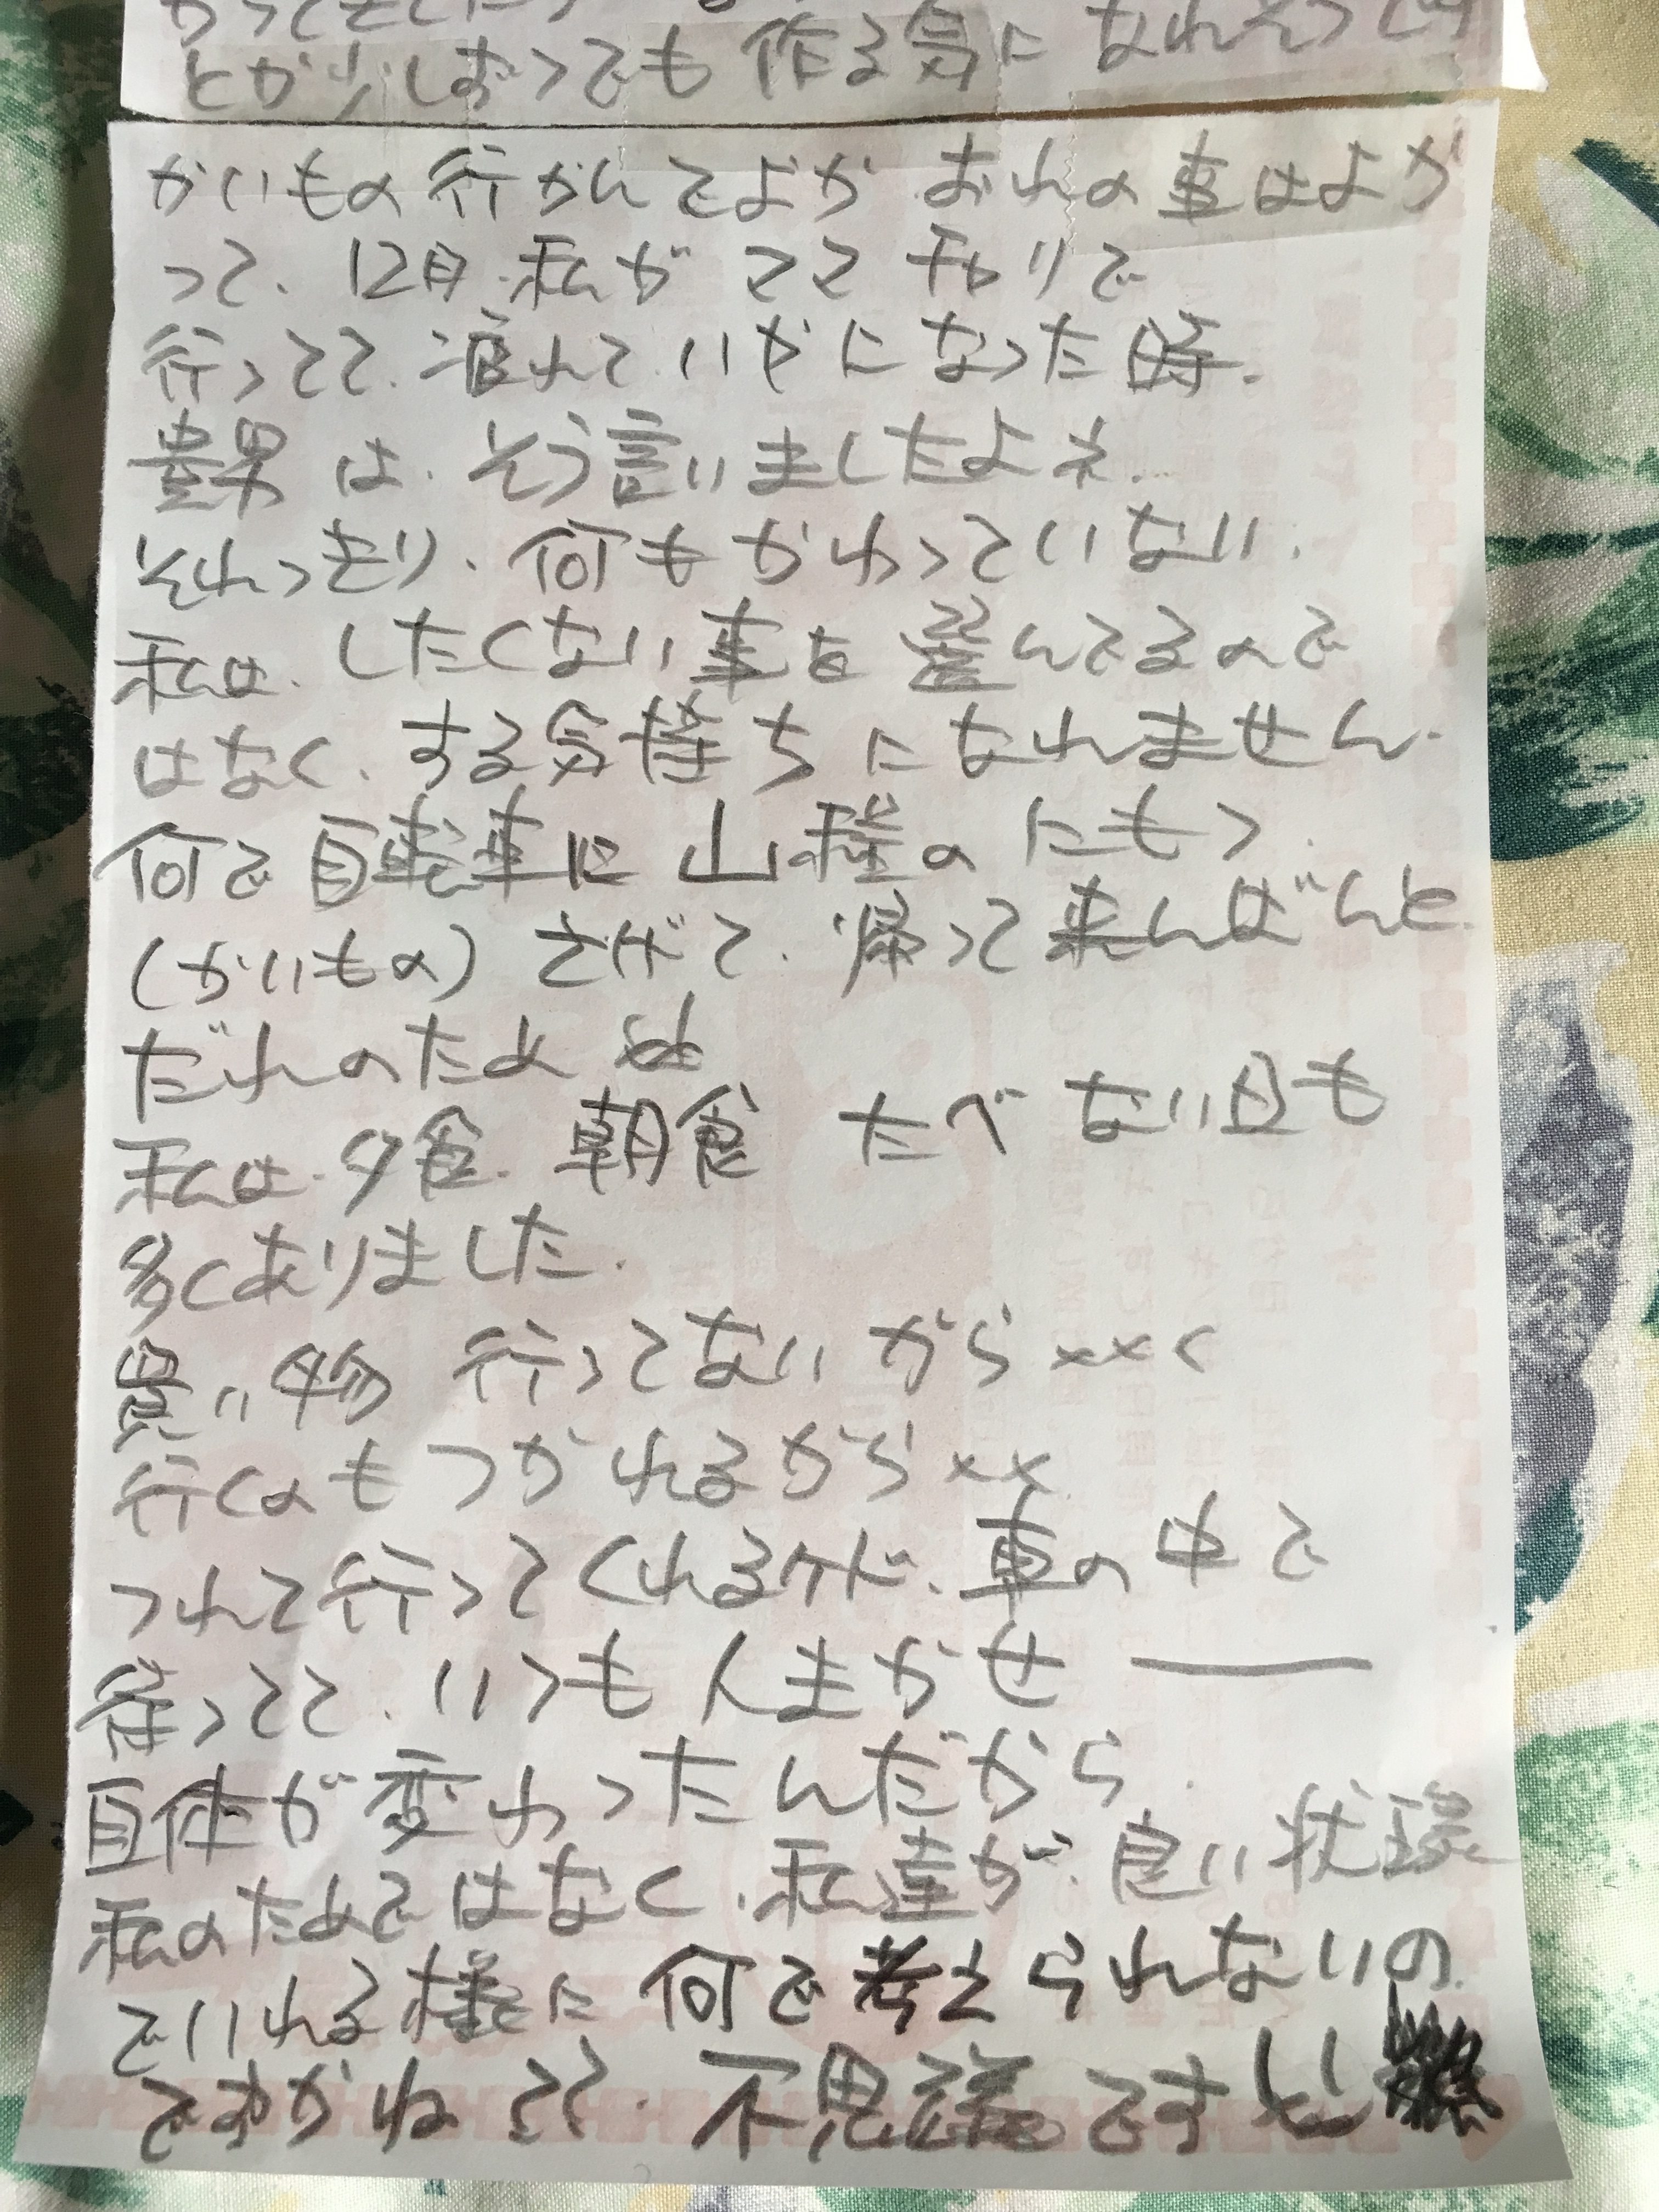 とか少しずつでも作る気になれそうです
かいもの行かんでよか おれの事はよか
って、12月、私がママチャリで
行ってて、濡れていやになった時、
貴男は、そう言いましたよネ.
それっきり、何もかわっていない.
私は、したくない事を選んでるので
はなく、する気持ちになれません.
何で自転車に山程のにもつ.
(かいもの)さげて、帰って来んばんと
だれのため
私は、夕食、朝食 たべない日も
多くありました.
買い物 行ってないから××く
行くのもつかれるから××
つれて行ってくれるケド、車の中で
待ってて、いつも人まかせ ——
自体が変わったんだから.
私のためではなく、私達が、良い状態
でいれる様に何で考えられないの
ですかね??、不思議です